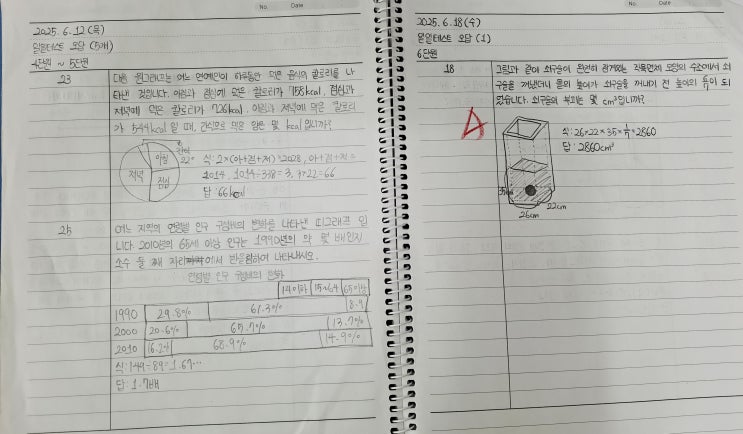 No.
Date
2025. 6. 12 (목)
일일테스트 오답 (5개)
4단원 ~ 5단원
23
다음 원그래프는 어느 연예인이 하루동안 먹은 음식의 칼로리를 나
타낸 것입니다. 아침과 점심에 먹은 칼로리가 758kcal, 점심과
저녁에 먹은 칼로리가 726kcal, 아침과 저녁에 먹은 칼로리
가 544kcal 일 때, 간식으로 먹은 양은 몇 kcal입니까?
간식
22°
아침
저녁
점심
식: 2×(아+점+저)=2028, 아+점+저=
1014, 1014÷338=3, 3×22=66
답: 66kcal
25
어느 지역의 연령별 인구 구성비의 변화를 나타낸 띠그래프 입
니다. 2010년의 65세 이상 인구는 1990년의 약 몇 배인지
소수 둘째 자리에서 반올림하여 나타내시오.
연령별 인구 구성비의 변화
14이하 15~64 65이상
1990 29.8% 61.3% 8.9
2000 20.6% 65.7% 13.7%
2010 16.2% 68.9% 14.9%
식: 149÷89=1.67···
답: 1.7배
No.
Date
2025. 6. 18 (수)
일일테스트 오답 (1)
6단원
18
그림과 같이 쇠구슬이 완전히 잠겨있는 직육면체 모양의 수조에서 쇠
구슬을 꺼냈더니 물의 높이가 쇠구슬을 꺼내기 전 높이의 6/7이 되
었습니다. 쇠구슬의 부피는 몇 cm³입니까?
식: 26×22×35×1/7=2860
답: 2860cm³
22cm
26cm